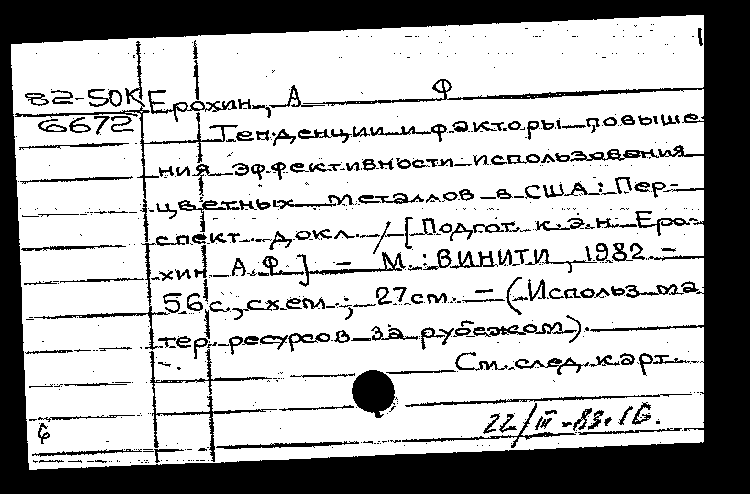 82-50К Ерохин, А Ф
6672 Тенденции и факторы повыше-
ния эффективности использования
цветных металлов в США: Пер-
спект. докл. / [Подгот. к.э.н. Еро-
хин А.Ф.] - М.: ВИНИТИ, 1982. -
56 с., схем.; 27 см. - (Использ. ма-
тер. ресурсов за рубежом).
См. след. карт.
22/III-83.